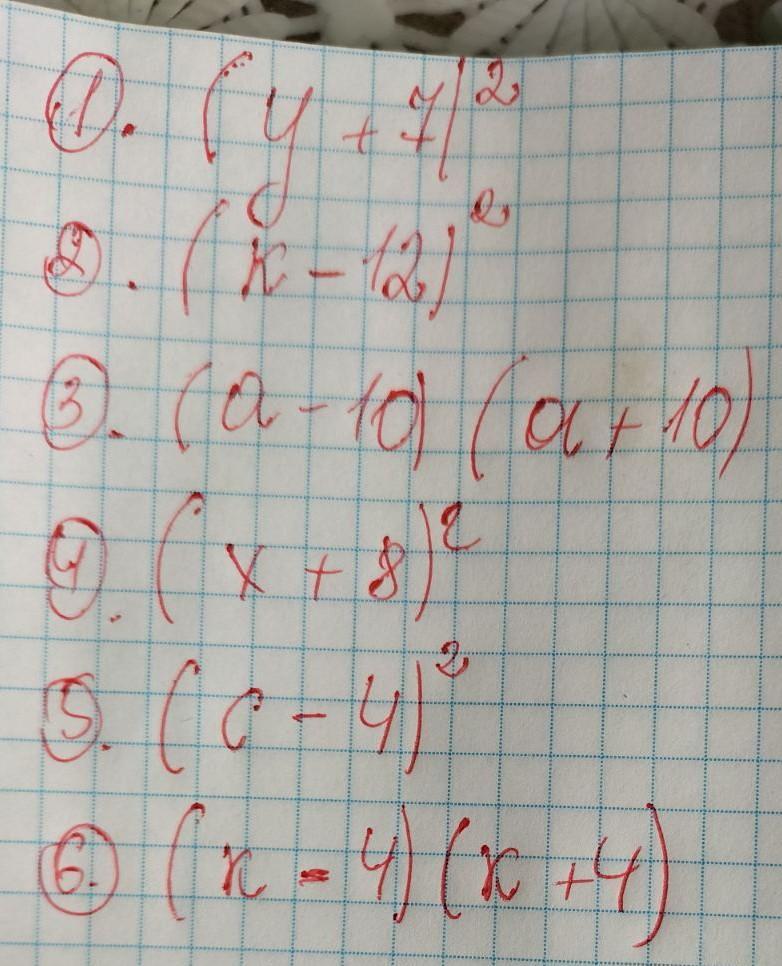 ①. (y + 7)²
②. (к - 12)²
③. (a - 10) (a + 10)
④. (x + 8)²
⑤. (c - 4)²
⑥. (к - 4) (к + 4)